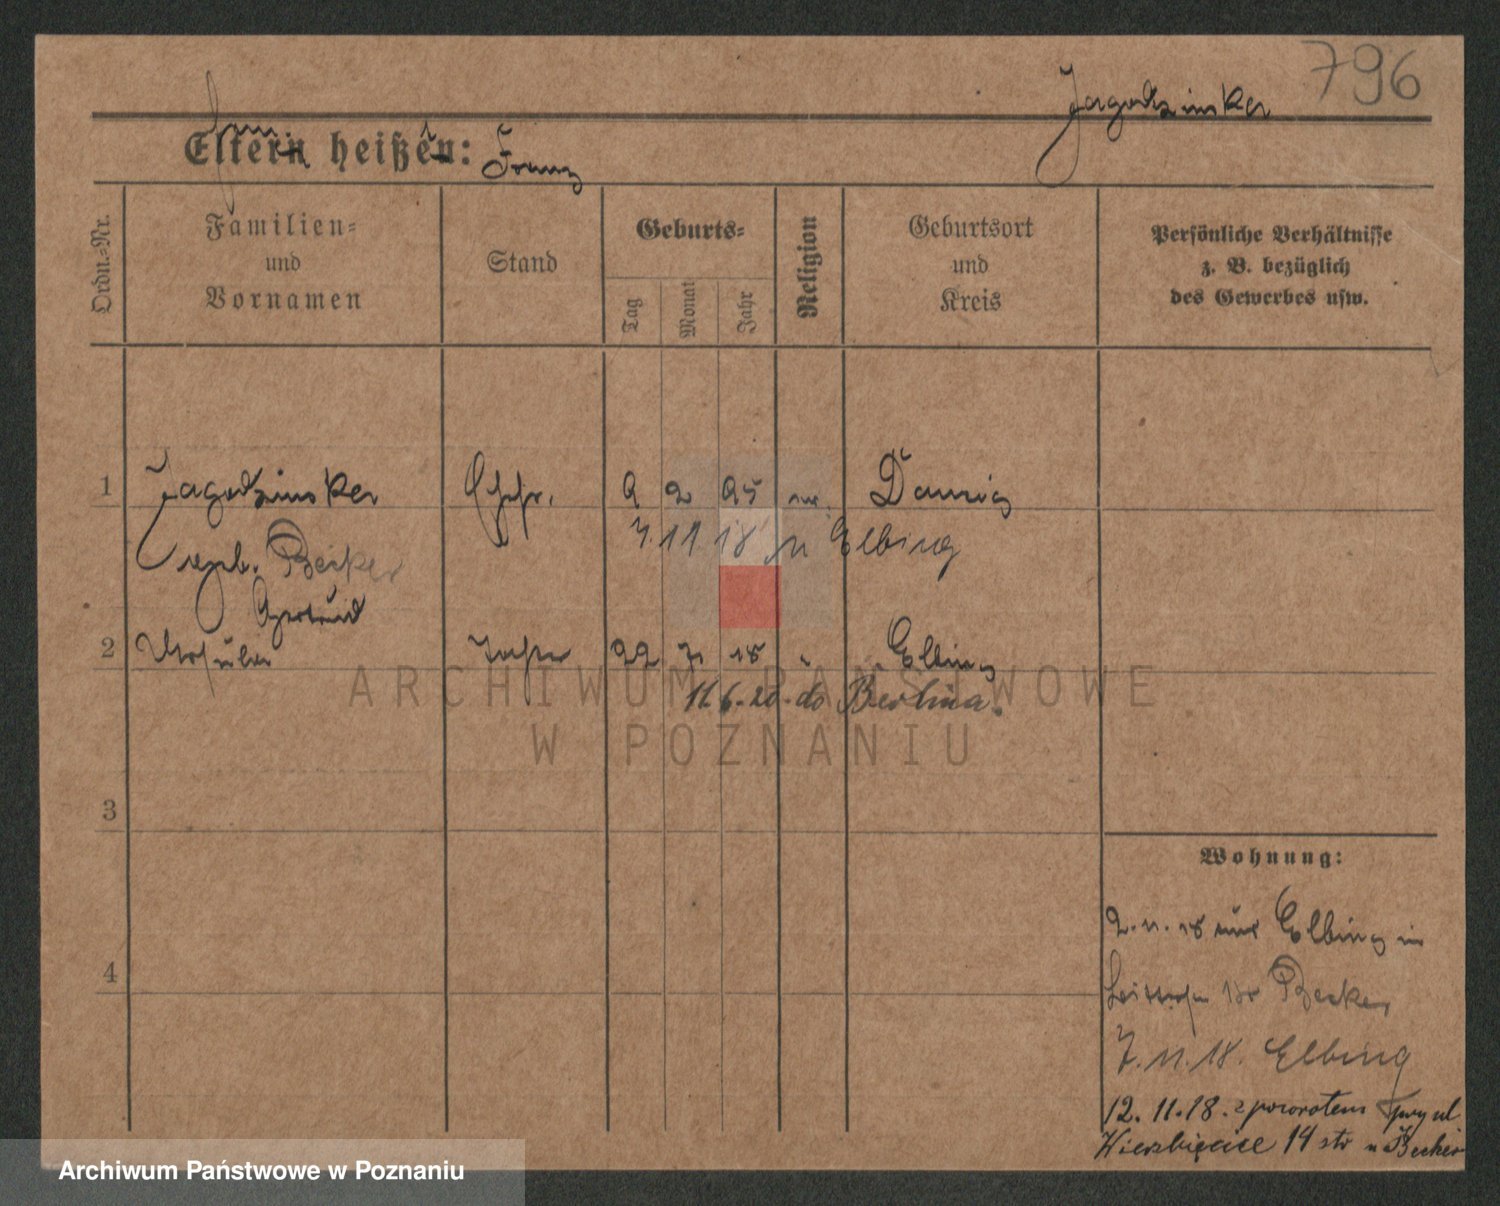 796
Jagodzinski
Eltern heißen: Franz
Ordn.-Nr.
Familien-
und
Vornamen
Stand
Geburts-
Tag
Monat
Jahr
Religion
Geburtsort
und
Kreis
Persönliche Verhältnisse
z. B. bezüglich
des Gewerbes usw.
1
Ehefr.
9 2 95
Danzig
7.11.18 n Elbing
geb. Becker
Gertrud
2
Ursula
Tochter
22 7 18
Elbing
11.6.20. do Berlina.
3
Wohnung:
2.11.18 aus Elbing in
18 Becker
4
7.11.18. Elbing
12.11.18. z powrotem przy ul
Wierzbięcice 14 str u Becker
ARCHIWUM PAŃSTWOWE
W POZNANIU
Archiwum Państwowe w Poznaniu